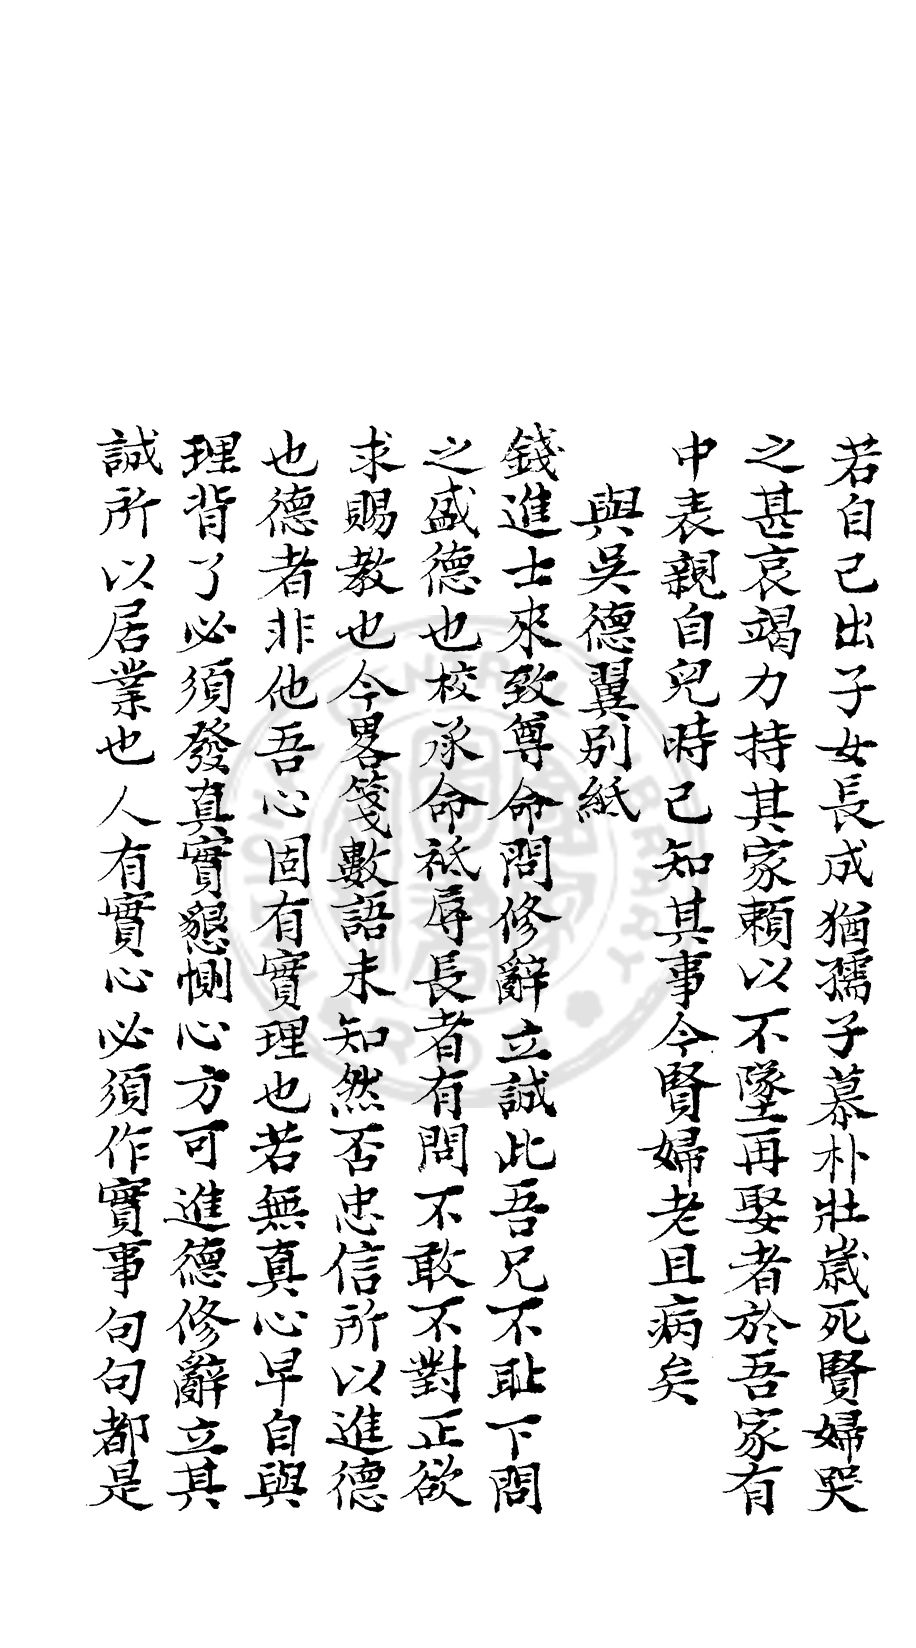 若自己出子女長成猶孺子慕朴壯歲死賢婦哭
之甚哀竭力持其家賴以不墜再娶者於吾家有
中表親自兒時已知其事今賢婦老且病矣
與吳德翼別紙
錢進士來致尊命問修辭立誠此吾兄不恥下問
之盛德也校承命祗辱長者有問不敢不對正欲
求賜教也今畧箋數語未知然否忠信所以進德
也德者非他吾心固有實理也若無真心早自與
理背了必須發真實懇惻心方可進德修辭立其
誠所以居業也人有實心必須作實事句句都是